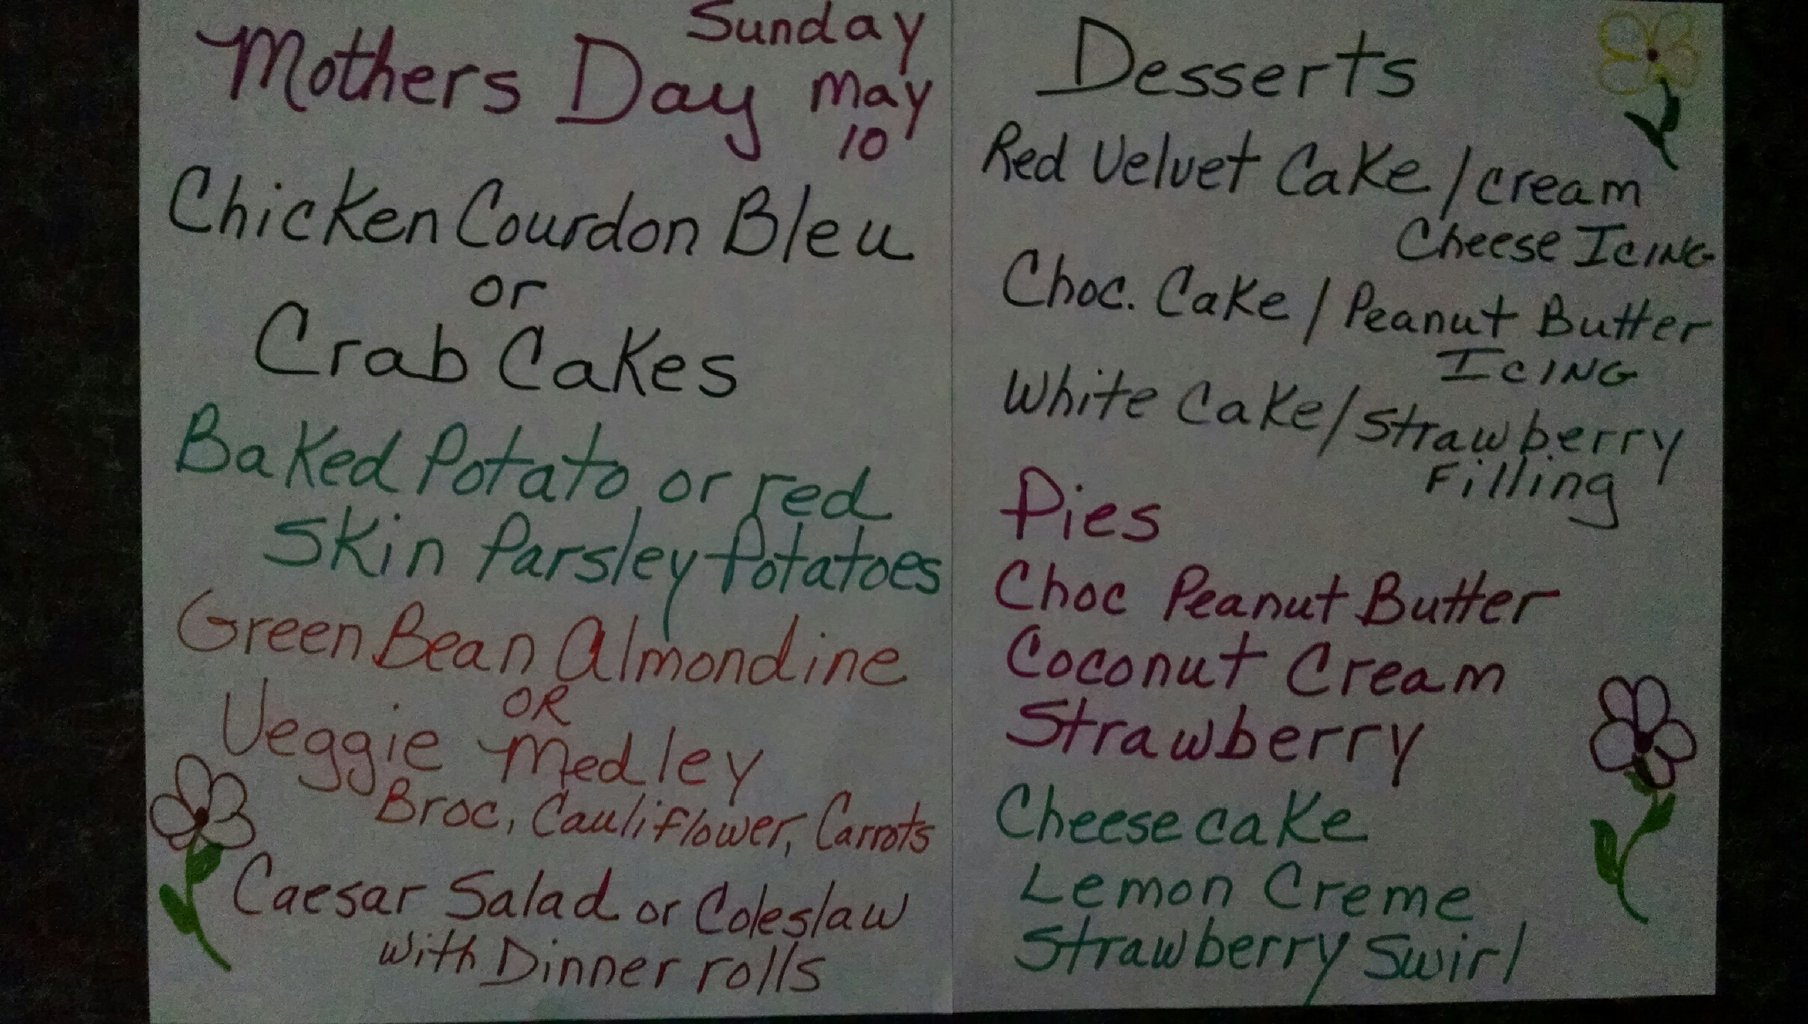 Mothers Day Sunday
May
10
Chicken Courdon Bleu
or
Crab Cakes
Baked Potato or red
Skin Parsley Potatoes
Green Bean Almondine
OR
Veggie Medley
Broc, Cauliflower, Carrots
Caesar Salad or Coleslaw
with Dinner rolls
Desserts
Red Velvet Cake / cream
Cheese Icing
Choc. Cake / Peanut Butter
Icing
White Cake / Strawberry
Filling
Pies
Choc Peanut Butter
Coconut Cream
Strawberry
Cheesecake
Lemon Creme
Strawberry Swirl